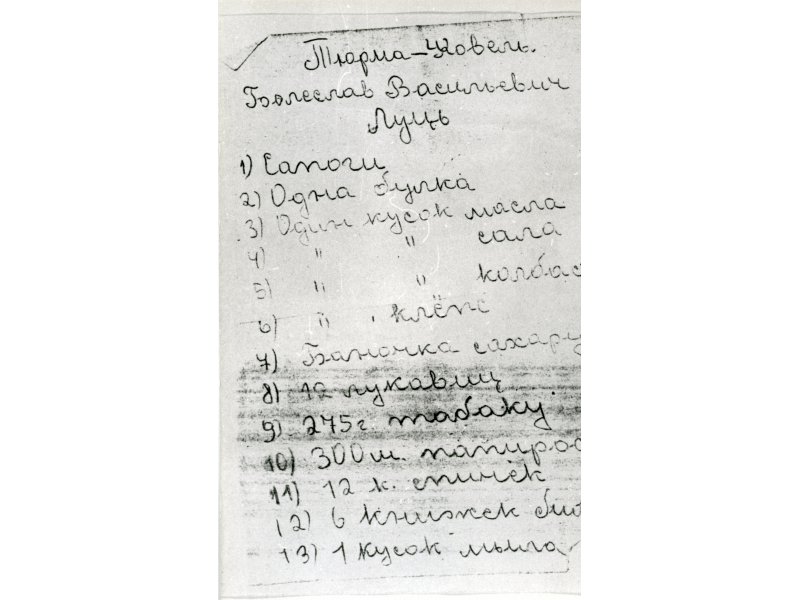 Тюрма-Ковель.
Болеслав Васильевич
Луць
1) Сапоги
2) Одна булка
3) Один кусок масла
4) " " сала
5) " " колбас
6) " " клёпс
7) Баночка сахару
8) 12 лукавиц
9) 275г. табаку.
10) 300ш. папирос
11) 12 к. спичек
12) 6 книжек
13) 1 кусок мыла